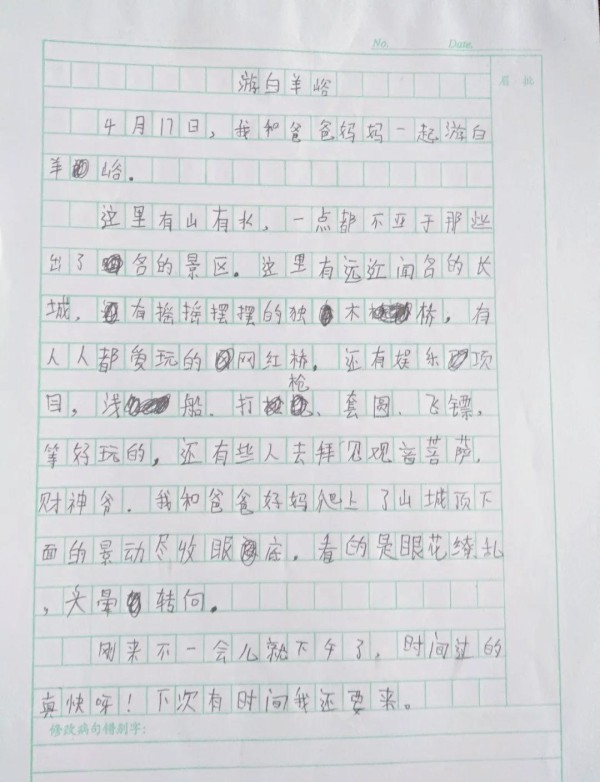 No. Date
眉批
游白羊峪
4月17日，我和爸爸妈妈一起游白
羊峪。
这里有山有水，一点都不亚于那些
出了名的景区。这里有远近闻名的长
城，有摇摇摆摆的独木桥，有
人人都爱玩的网红桥，还有娱乐项
目，浅船、打枪、套圆、飞镖，
等好玩的，还有些人去拜见观音菩萨，
财神爷．我和爸爸好妈爬上了山城顶下
面的景动尽收眼底．看的是眼花缭乱
，头晕转向。
刚来不一会儿就下午了，时间过的
真快呀！下次有时间我还要来。
修改病句错别字：